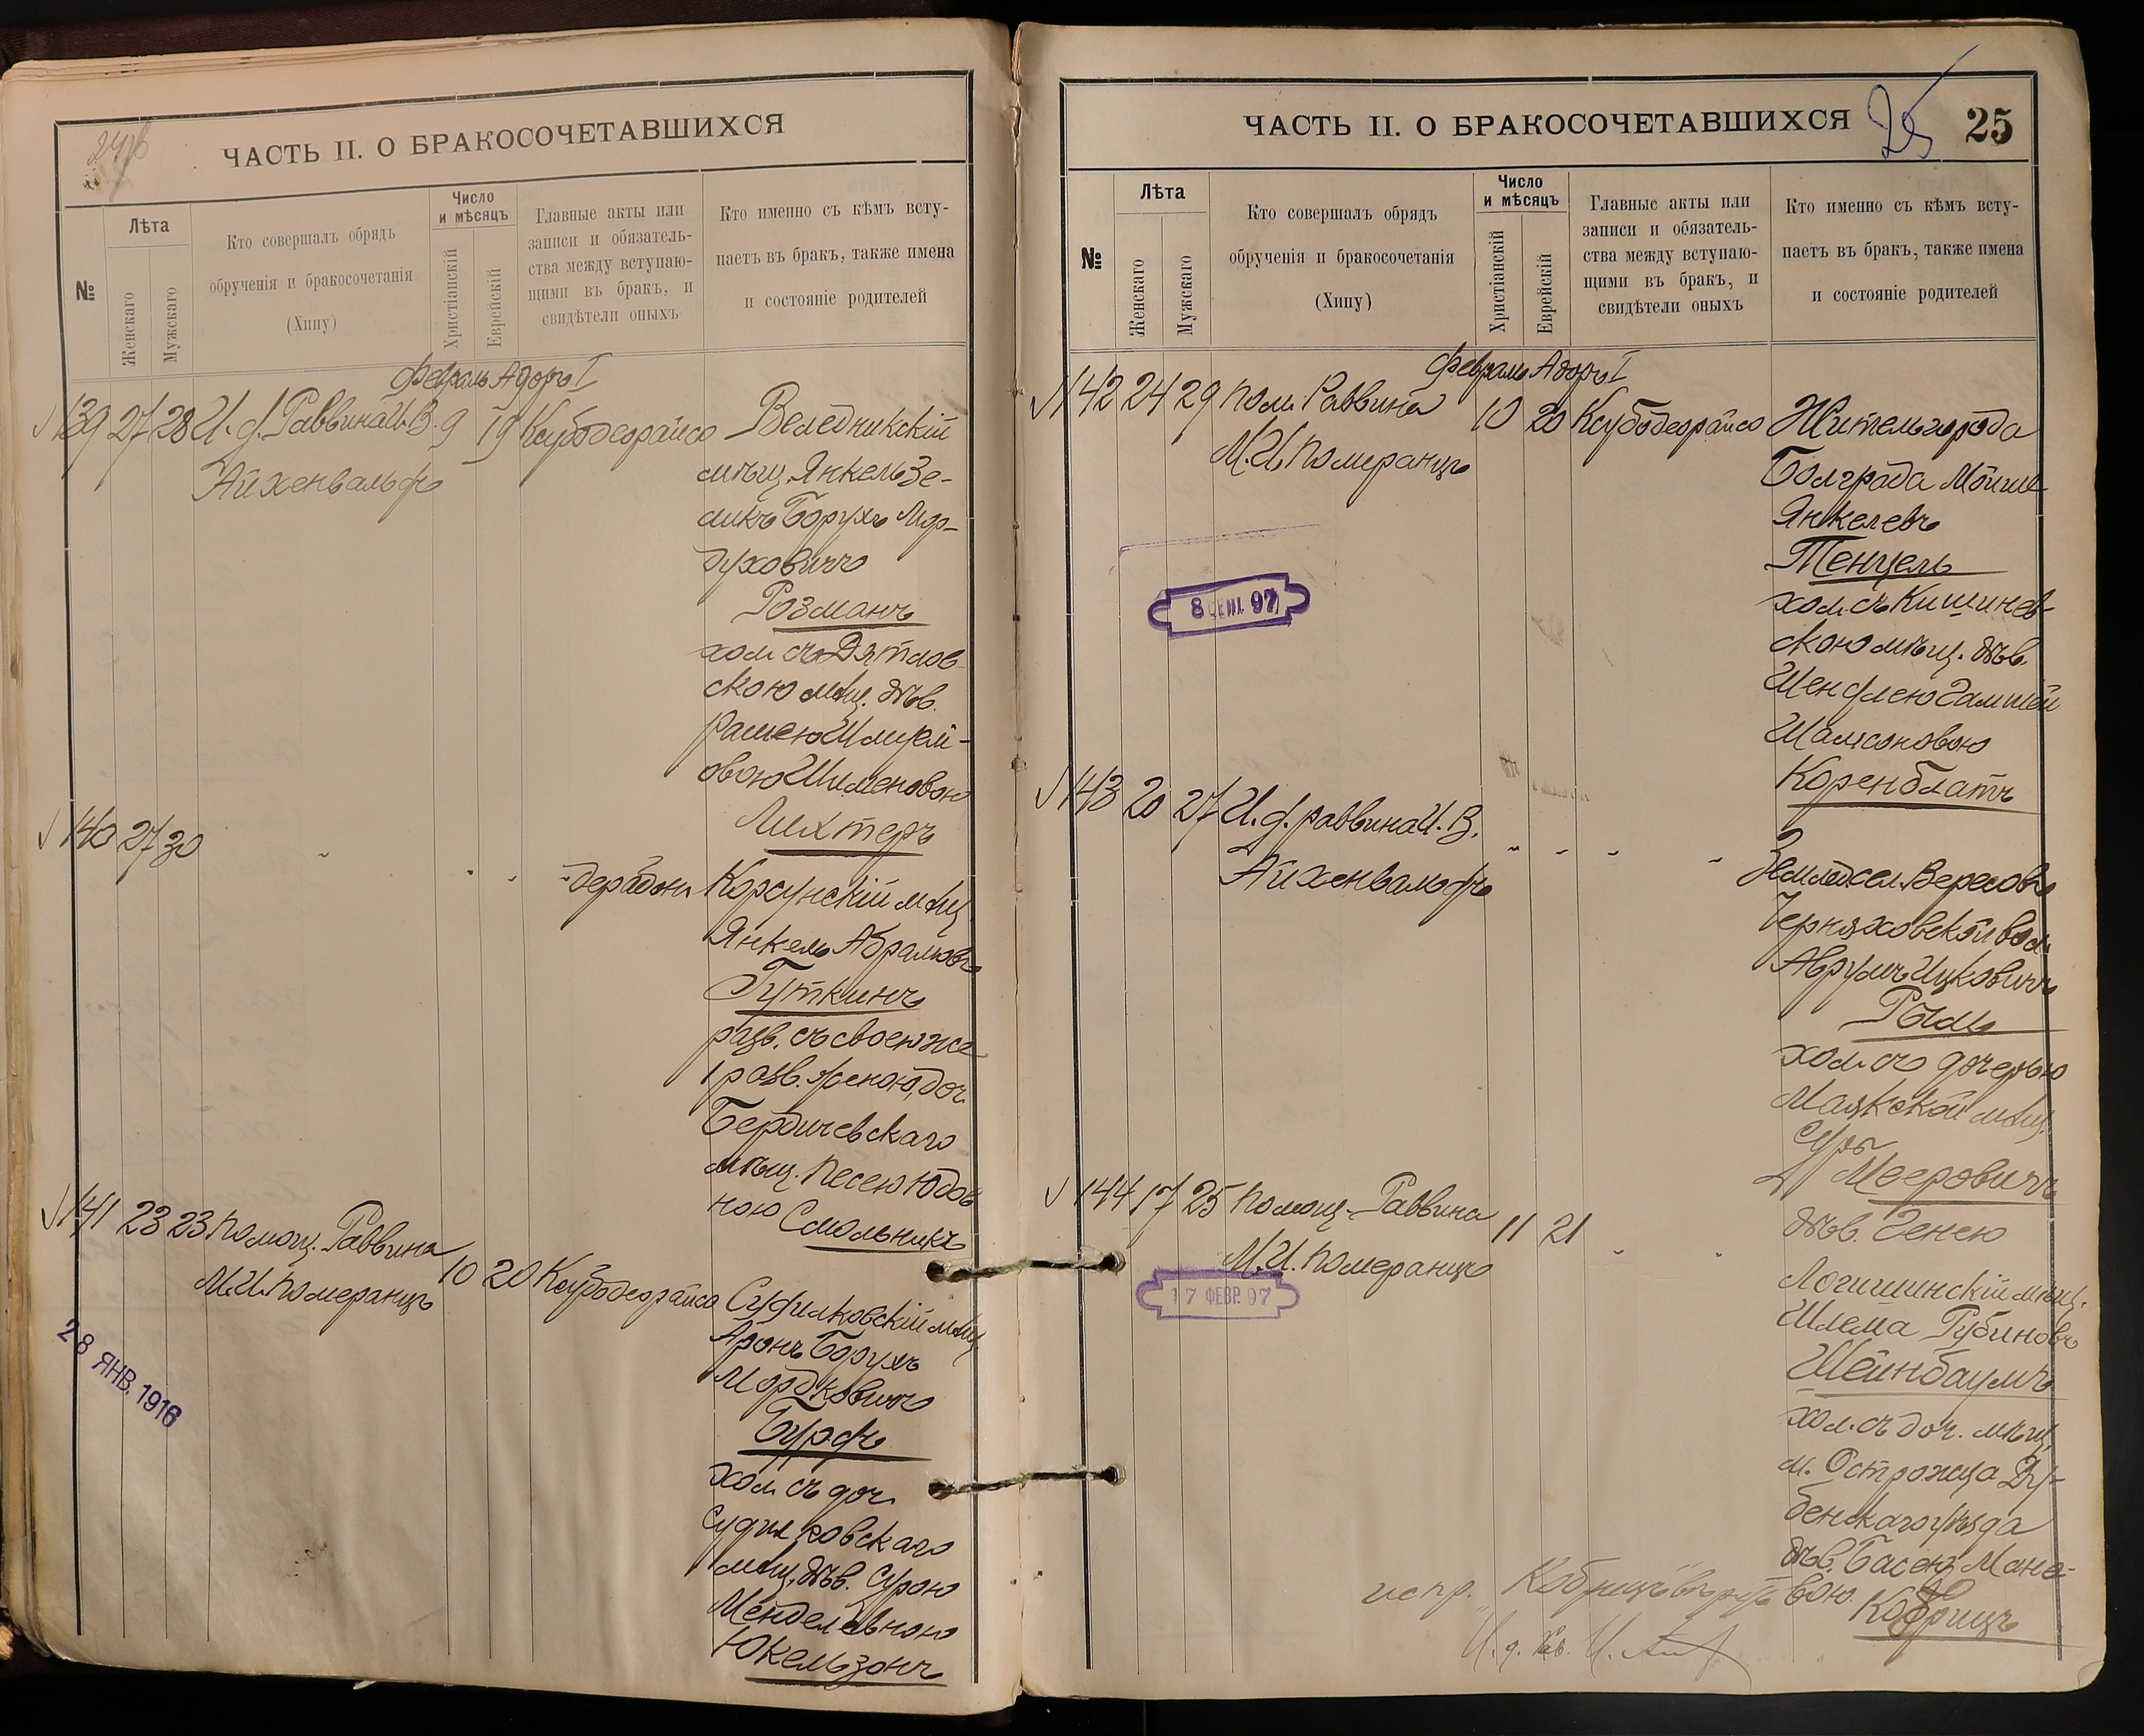 ЧАСТЬ II. О БРАКОСОЧЕТАВШИХСЯ
№
Лѣта
Женскаго
Мужскаго
Кто совершалъ обрядъ
обрученія и бракосочетанія
(Хипу)
Число
и мѣсяцъ
Христіанскій
Еврейскій
Главные акты или
записи и обязатель-
ства между вступаю-
щими въ бракъ, и
свидѣтели оныхъ
Кто именно съ кѣмъ всту-
паетъ въ бракъ, также имена
и состояніе родителей
Февраль Адоръ I
139 27 28 И. д. Раввина И. В. 9 19
Айхенвальдъ
Веледникскій
мѣщ. Янкель Зе-
ликъ Борухъ Мор-
духовичъ
Розманъ
хол. съ Дятлов-
скою мѣщ. дѣв.
Рашею Шмуел-
овою Шименовою
Лихтеръ
140 27 30 " " " "
Корсунскій мѣщ.
Янкель Абрамовъ
Гуткинъ
разв. съ своею же
разв. женою, доч.
Бердичевскаго
мѣщ. Песею Юдов-
ною Смольникъ
141 23 23 Помощ. Раввина 10 20
М. И. Померанцъ
Судилковскій мѣщ.
Аронъ Борухъ
Мордковичъ
Бурдъ
хол. съ доч.
Судилковскаго
мѣщ. дѣв. Сурою
Менделевною
Юкельзонъ
28 ЯНВ. 1916
ЧАСТЬ II. О БРАКОСОЧЕТАВШИХСЯ
25
25
№
Лѣта
Женскаго
Мужскаго
Кто совершалъ обрядъ
обрученія и бракосочетанія
(Хипу)
Число
и мѣсяцъ
Христіанскій
Еврейскій
Главные акты или
записи и обязатель-
ства между вступаю-
щими въ бракъ, и
свидѣтели оныхъ
Кто именно съ кѣмъ всту-
паетъ въ бракъ, также имена
и состояніе родителей
Февраль Адоръ I
142 24 29 Пом. Раввина 10 20
М. И. Померанцъ
Житель города
Болграда Мойше
Янкелевъ
Тенцель
хол. съ Кишинев-
скою мѣщ. дѣв.
Шамсоновою
Коренблатъ
143 20 27 И. д. раввина И. В. " " " "
Айхенвальдъ
Черняховской вол.
Аврумъ Ицковичъ
хол. съ дочерью
Маякской мѣщ.
Суры
Мееровичъ
дѣв. Генею
144 17 25 Помощ. Раввина 11 21 " "
М. И. Померанцъ
17 ФЕВР. 97
Логишинскій мѣщ.
Шлема Рубиновъ
Шейнбаумъ
хол. съ доч. мѣщ.
м. Острожца Ду-
бенскаго уѣзда
дѣв. Басею Мане-
вою
Кобрицъ
испр. "Кобрицъ"